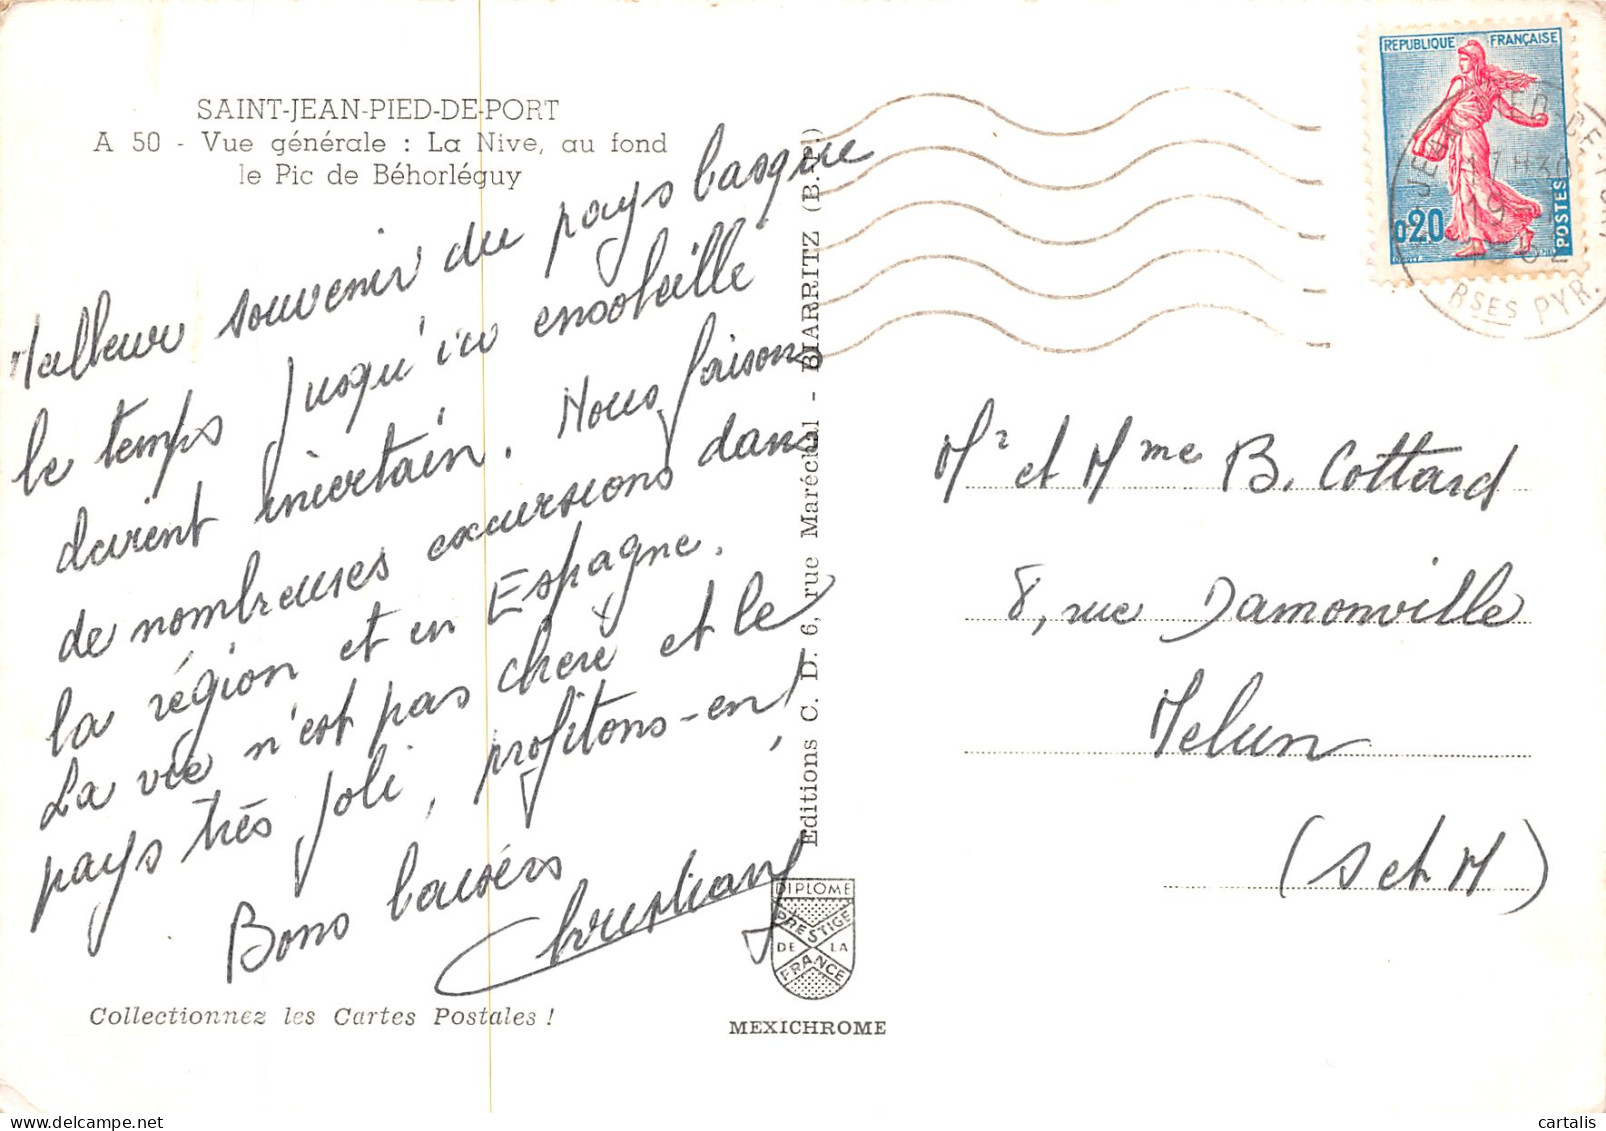 SAINT-JEAN-PIED-DE-PORT
A 50 - Vue générale : La Nive, au fond
le Pic de Béhorléguy
Meilleur souvenir du pays basque
le temps jusqu'ici ensoleillé
devient incertain. Nous faisons
de nombreuses excursions dans
la région et en Espagne.
La vie n'est pas chère et le
pays très joli, profitons-en!
Bons baisers
Christiany
Collectionnez les Cartes Postales !
Editions C. D. 6, rue Maréchal - BIARRITZ
DIPLOME
PRESTIGE
DE LA
FRANCE
MEXICHROME
REPUBLIQUE FRANÇAISE
0,20
POSTES
17H30
19
1962
BSES PYR.
Mr et Mme B. Cottard
8, rue Damonville
Melun
(S et M)
cartalis